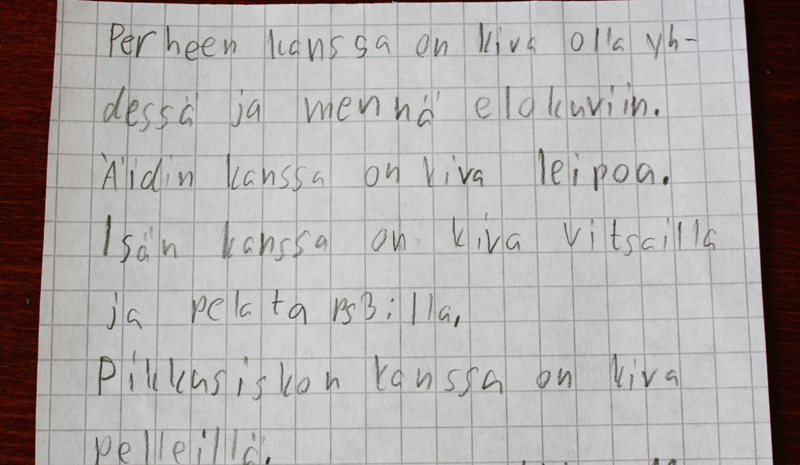 Perheen kanssa on kiva olla yh-
dessä ja mennä elokuviin.
Äidin kanssa on kiva leipoa.
Isän kanssa on kiva vitsailla
ja pelata ps3:lla,
Pikkusiskon kanssa on kiva
pelleillä.